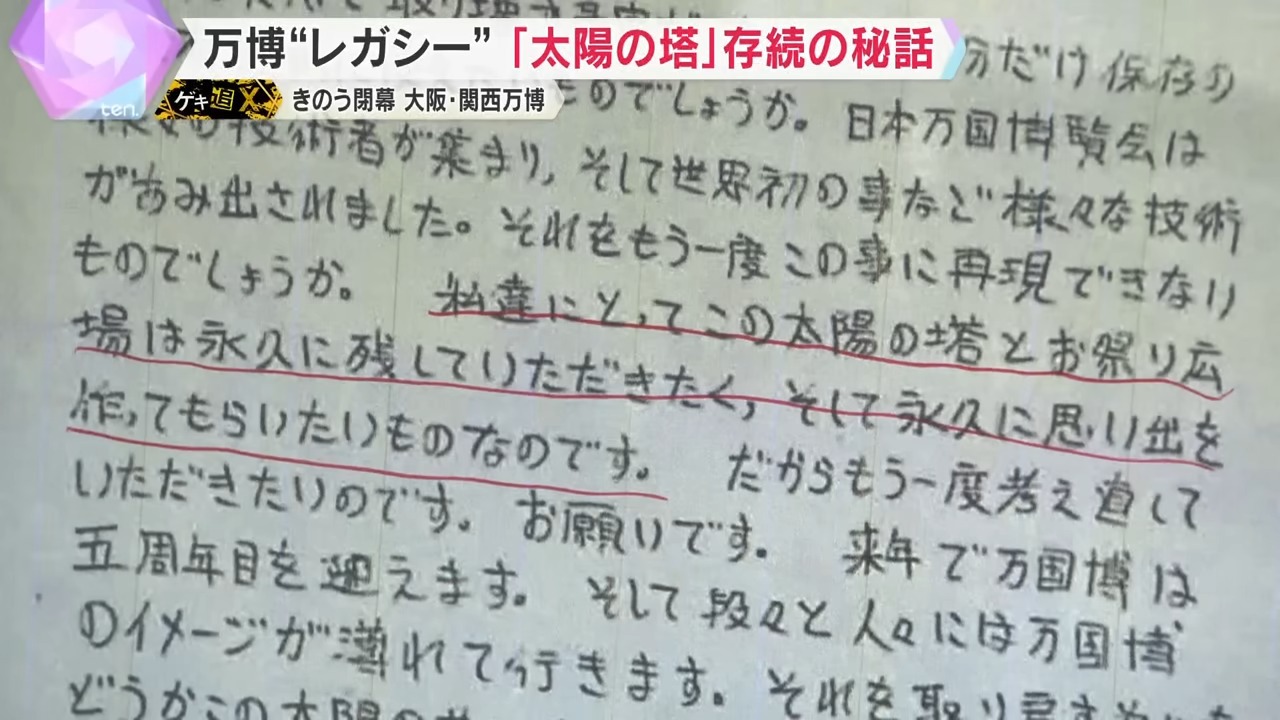 万博“レガシー”「太陽の塔」存続の秘話
ten.
ゲキ追X
きのう閉幕 大阪・関西万博
分だけ保存の
のでしょうか。日本万国博覧会は
技術者が集まり,そして世界初の事など様々な技術
があみ出されました。それをもう一度この事に再現できない
ものでしょうか。 私達にとってこの太陽の塔とお祭り広
場は永久に残していただきたく,そして永久に思い出を
作ってもらいたいものなのです。 だからもう一度考え直して
いただきたいのです。 お願いです。 来年で万国博は
五周年目を迎えます。 そして段々と人々には万国博
のイメージが薄れて行きます。それを取り戻
どうかこの太陽の